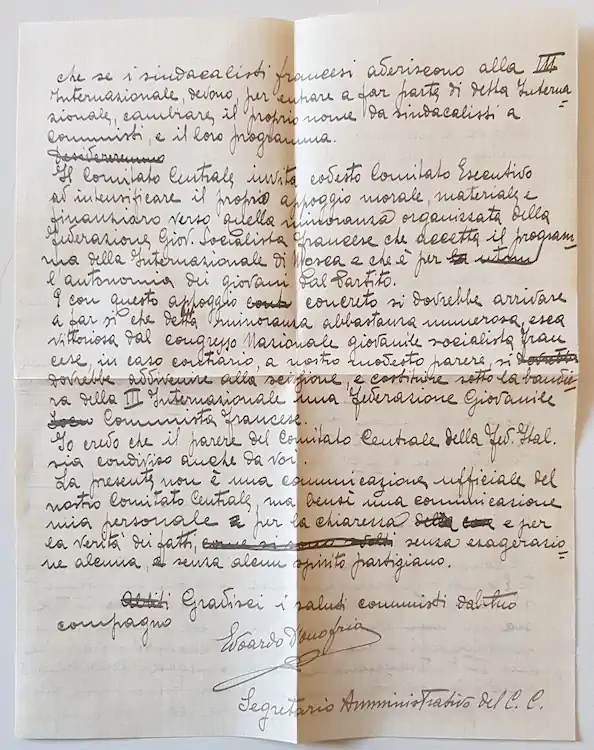 che se i sindacalisti francesi aderiscono alla III
Internazionale, devono, per entrare a far parte di detta Interna=
zionale, cambiare il proprio nome da sindacalisti a
comunisti, e il loro programma.
Il Comitato Centrale invita codesto Comitato Esecutivo
ad intensificare il proprio appoggio morale, materiale e
finanziario verso quella minoranza organizzata della
Federazione Giov. Socialista Francese che accetta il program=
ma della Internazionale di Mosca e che è per
l'autonomia dei giovani dal Partito.
E con questo appoggio concreto si dovrebbe arrivare
a far sì che detta minoranza abbastanza numerosa, esca
vittoriosa dal congresso Nazionale giovanile socialista fran
cese, in caso contrario, a nostro modesto parere, si
dovrebbe addivenire alla scissione, e costituire sotto la bandie=
ra della III Internazionale una Federazione Giovanile
Comunista Francese.
Io credo che il parere del Comitato Centrale della Fed. Ital.
sia condiviso anche da voi.
La presente non è una comunicazione ufficiale del
nostro Comitato Centrale, ma bensì una comunicazione
mia personale per la chiarezza e per
la verità dei fatti, senza esagerazio=
ne alcuna, e senza alcun spirito partigiano.
Gradisci i saluti comunisti dal tuo
compagno
Edoardo D'Onofrio
Segretario Amministrativo del C. C.